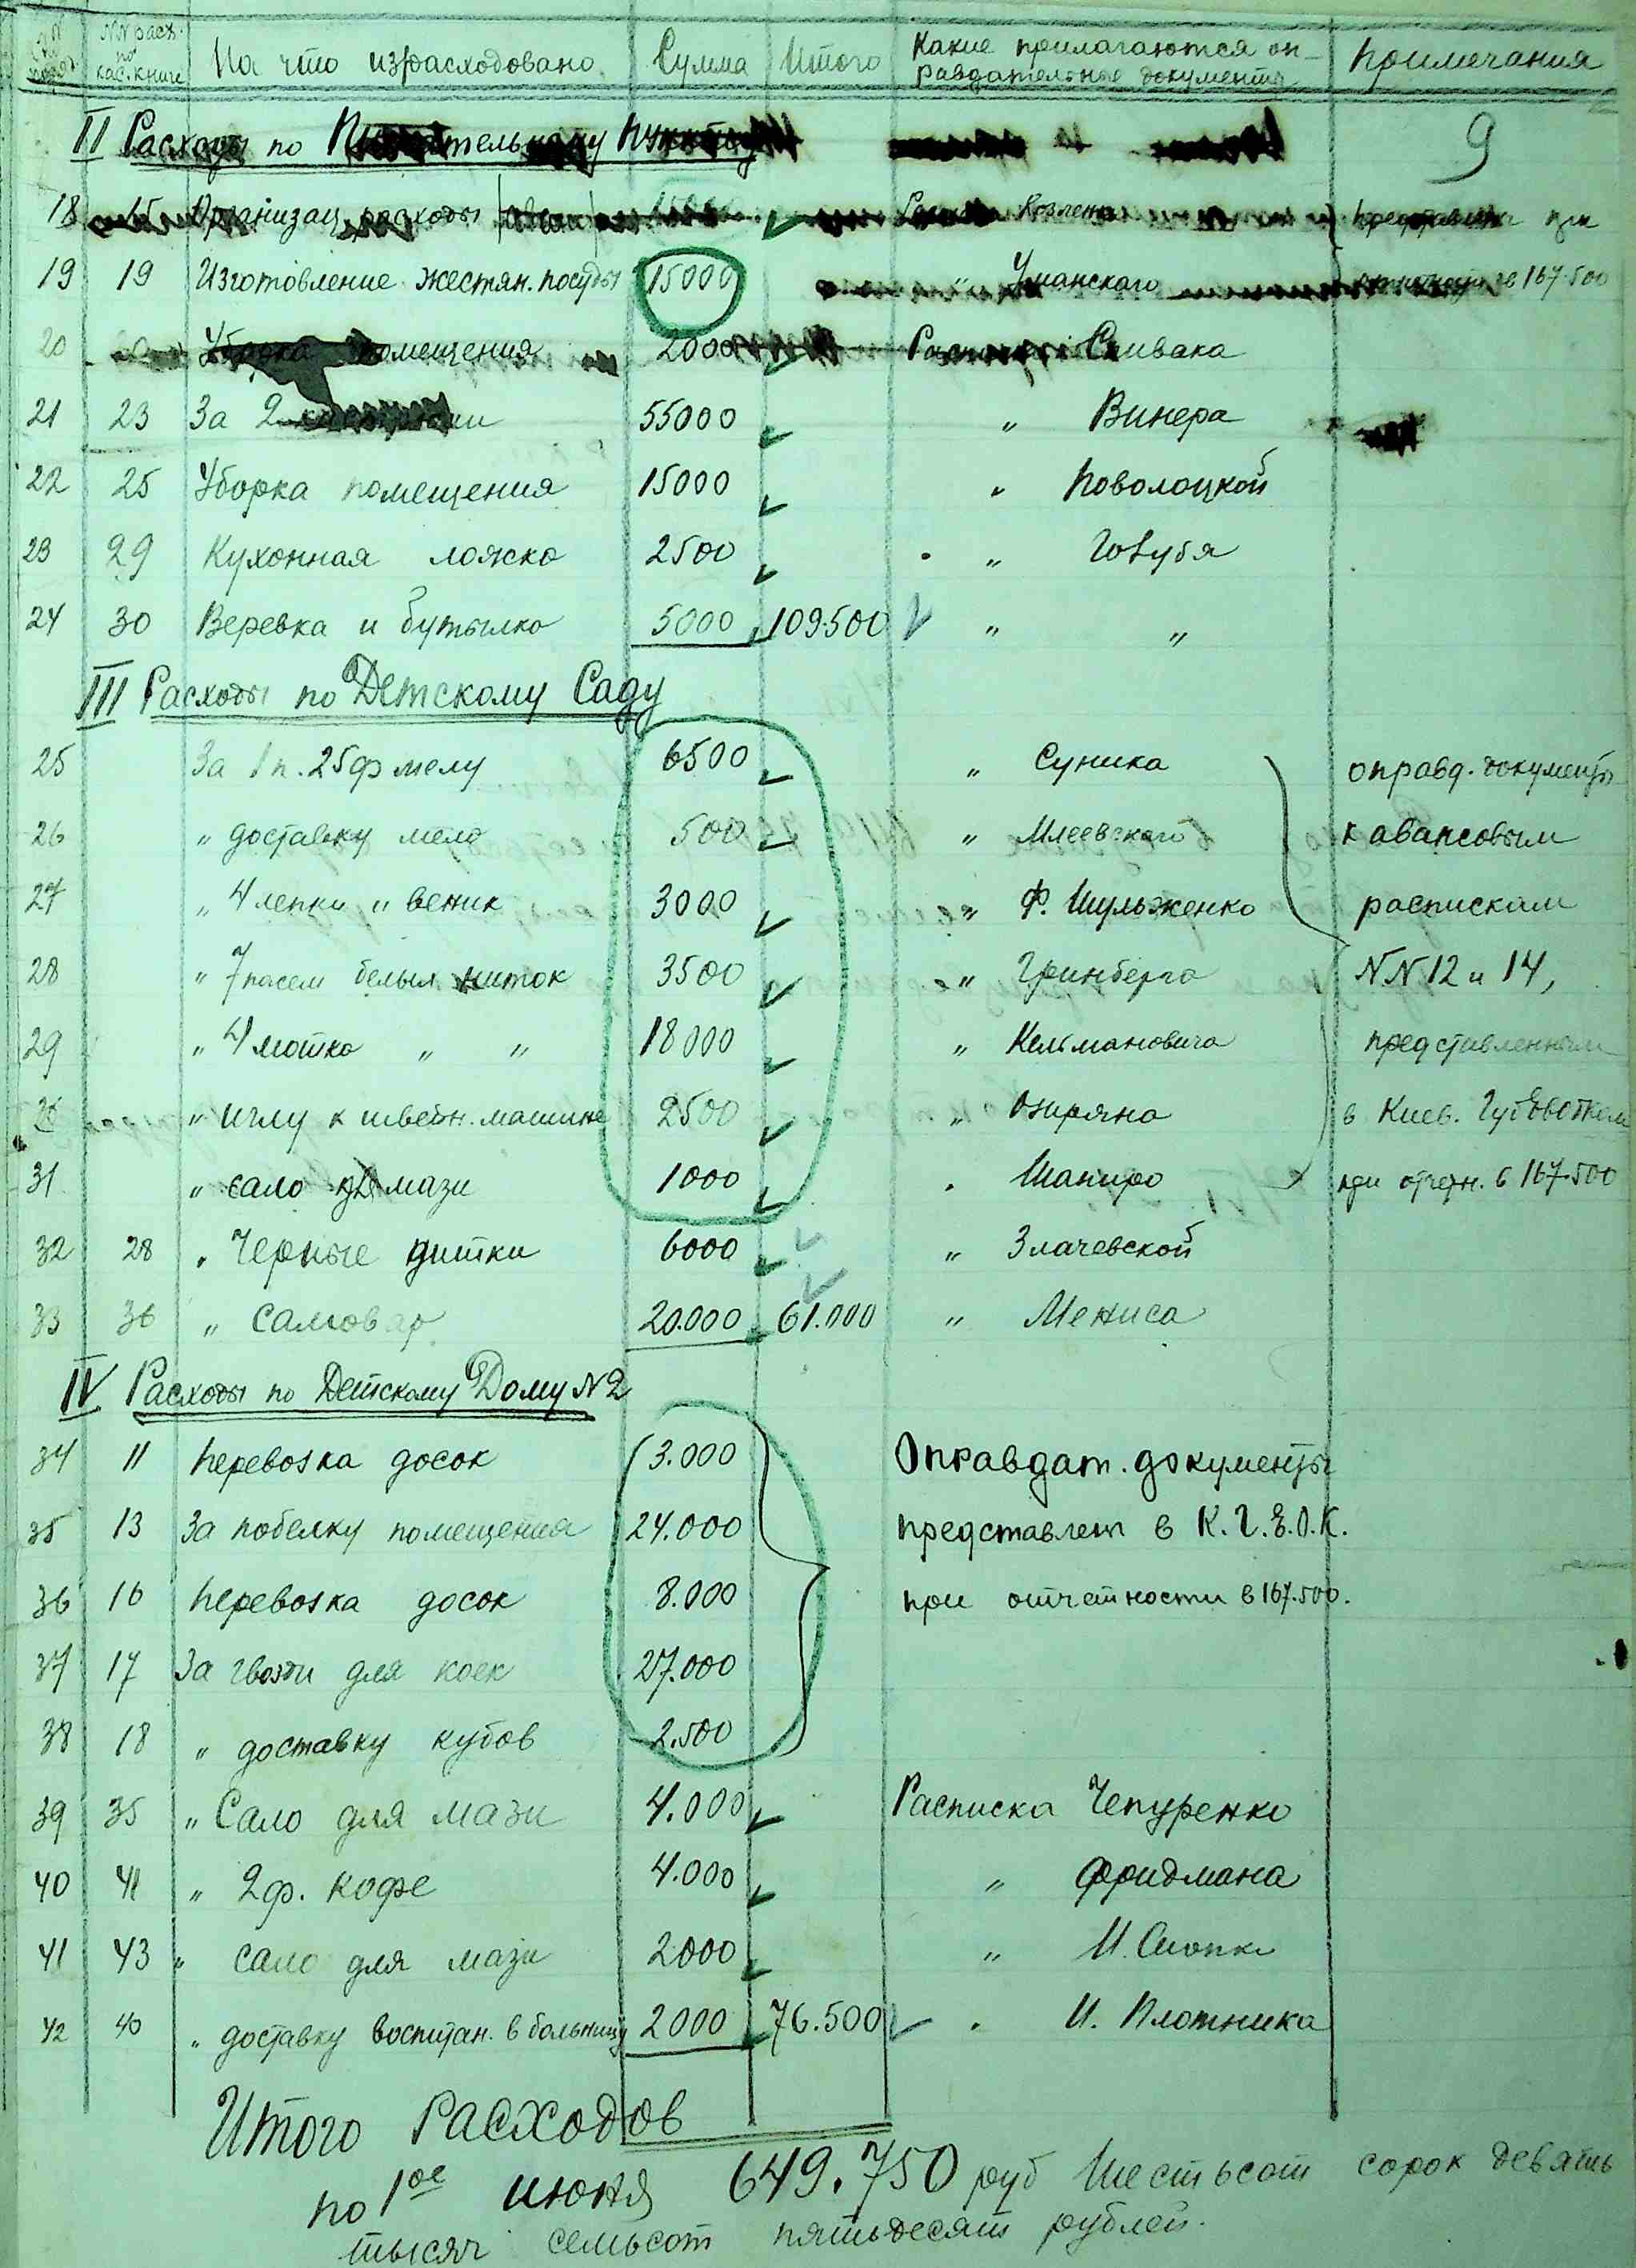 NN поряд. NN расх. по кас. книге На что израсходовано Сумма Итого Какие прилагаются оправдательные документы Примечания
9
II Расходы по Питательному Пункту
18 15 Организац. расходы
19 19 Изготовление жестян. посуды 15000 " Уманского в 167.500
20 Уборка помещения 2000 Расписка Спивака
21 23 За 2 55000 " Винера
22 25 Уборка помещения 15000 " Поволоцкой
23 29 Кухонная ложка 2500 " Голубя
24 30 Веревка и бутылка 5000 109.500 " "
III Расходы по Детскому Саду
25 За 1 п. 25 ф мелу 6500 " Суника оправд. документы
26 " доставку мела 500 " Млеевского к авансовым
27 " 4 лепки и веник 3000 " Ф. Шульженко распискам
28 " 7 пасем белых ниток 3500 " Гринберга NN 12 и 14,
29 " 4 мотка " " 18000 " Кельмановича представленным
" иглу к швейн. машине 2500 " Озиряна в Киев.
31 " сало для мази 1000 " Шапиро при отчетн. в 167.500
32 28 " Черные нитки 6000 " Злачевской
33 36 " Самовар 20.000 61.000 " Мениса
IV Расходы по Детскому Дому N2
34 11 Перевозка досок 3.000 Оправдат. документы
35 13 За побелку помещения 24.000 представлен в К.Г.Е.О.К.
36 16 Перевозка досок 8.000 при отчетности в 167.500.
37 17 За гвозди для коек 27.000
38 18 " доставку кубов 2.500
39 35 " Сало для мази 4.000 Расписка Чепуренко
40 41 " 2 ф. кофе 4.000 " Фридмана
41 43 " сало для мази 2000 "
42 40 " доставку воспитан. в больницу 2000 76.500 " И. Плотника
Итого Расходов
по 1ое июня 649.750 руб Шестьсот сорок девять
тысяч семьсот пятьдесят рублей.